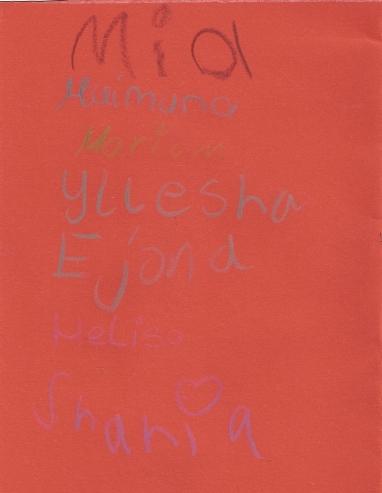 Mia
Muimuna
Mariam
Yllesha
Ejona
Melisa
Shania